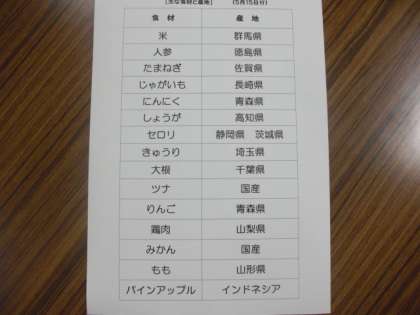 [主な食材と産地] (5月15日分)
食材 産地
米 群馬県
人参 徳島県
たまねぎ 佐賀県
じゃがいも 長崎県
にんにく 青森県
しょうが 高知県
セロリ 静岡県 茨城県
きゅうり 埼玉県
大根 千葉県
ツナ 国産
りんご 青森県
鶏肉 山梨県
みかん 国産
もも 山形県
パインアップル インドネシア